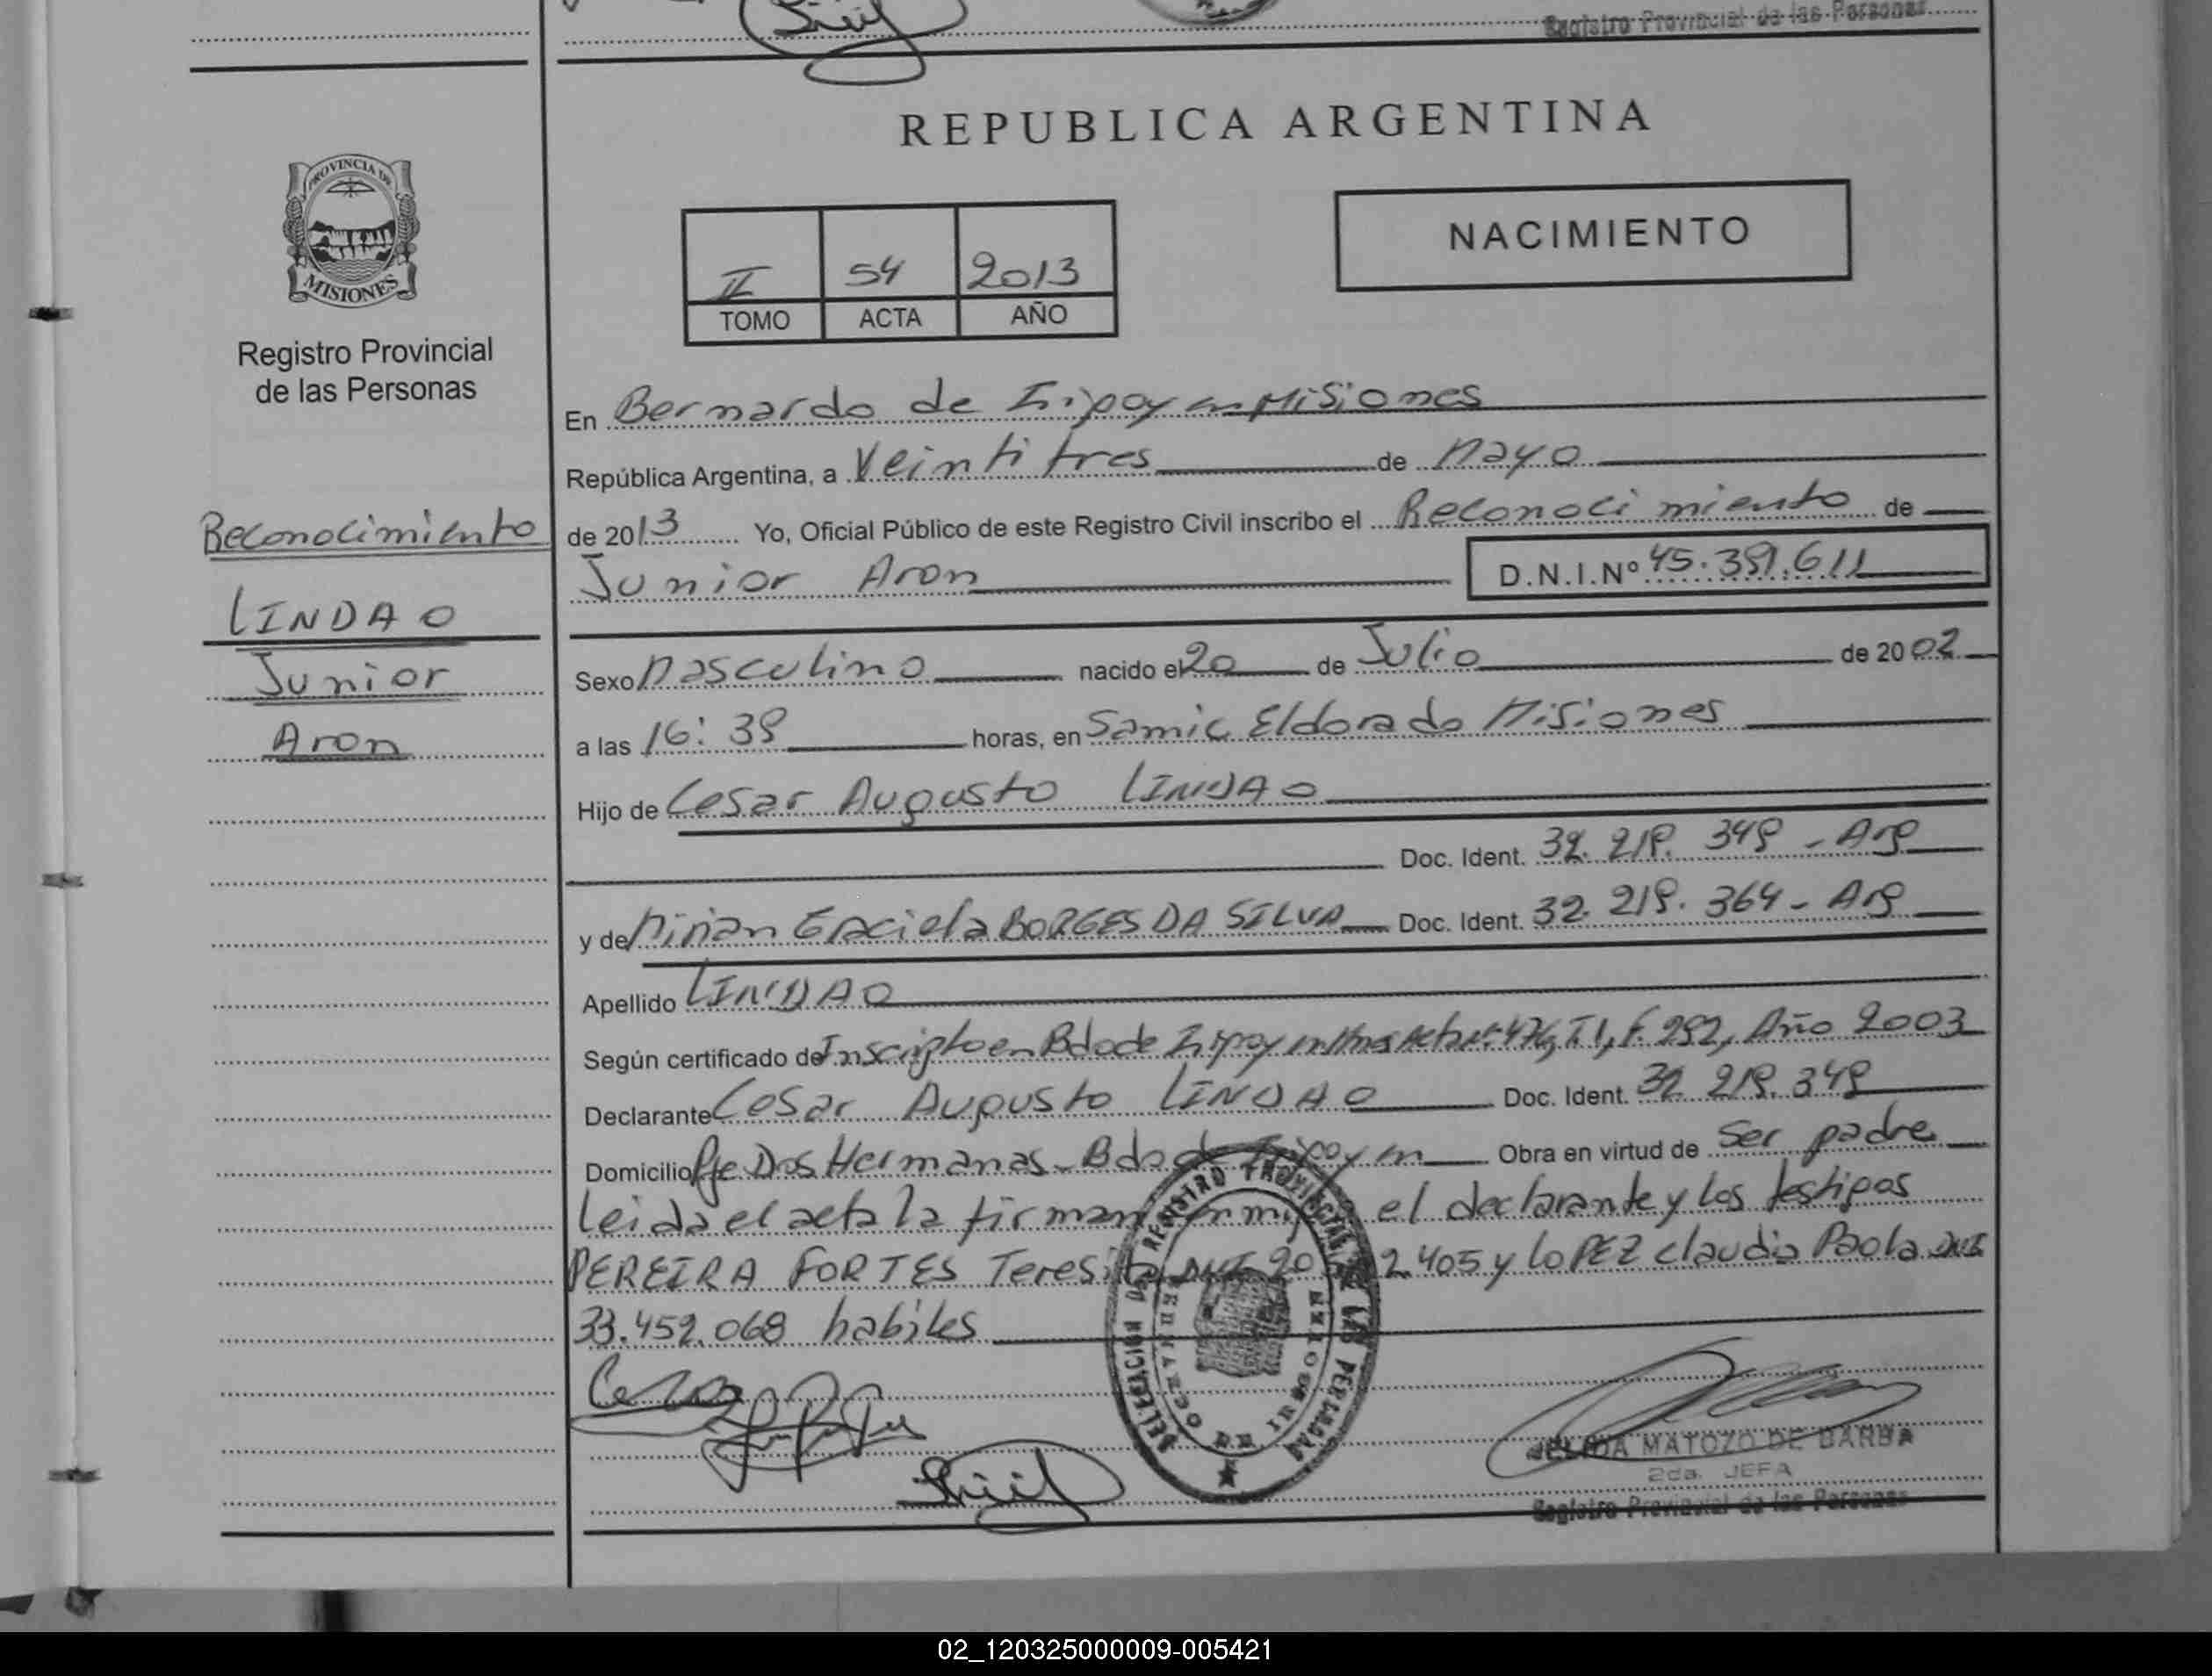 Registro Provincial de las Personas
REPUBLICA ARGENTINA
PROVINCIA DE
MISIONES
Registro Provincial
de las Personas
NACIMIENTO
II 54 2013
TOMO ACTA AÑO
En Bernardo de Irigoyen Misiones
República Argentina, a Veintitres de Mayo
de 2013 Yo, Oficial Público de este Registro Civil inscribo el Reconocimiento de
Junior Aron D.N.I.Nº 45.391.611
Reconocimiento
LINDAO
Junior
Aron
Sexo Masculino nacido el 20 de Julio de 2002
a las 16: horas, en Samic Eldorado Misiones
Hijo de Cesar Augusto LINDAO
Doc. Ident. 32.219.349 - Arg
y de Mirian Graciela BORGES DA SILVA Doc. Ident. 32.219.364 - Arg
Apellido LINDAO
Según certificado de Inscripto en Bdo de Irigoyen Mnes Acta Nº 476, T I, F. 252, Año 2003
Declarante Cesar Augusto LINDAO Doc. Ident. 32.219.349
Domicilio Pje Dos Hermanas - Bdo de Irigoyen Obra en virtud de Ser padre
Leida el acta la firman el declarante y los testigos
PEREIRA FORTES Teresita DNI 20 2.405 y LOPEZ Claudia Paola DNI
33.452.068 habiles
DELEGACION DE REGISTRO PROVINCIAL DE LAS PERSONAS
MATOZO DE BARBA
2da. JEFA
Registro Provincial de las Personas
02_120325000009-005421